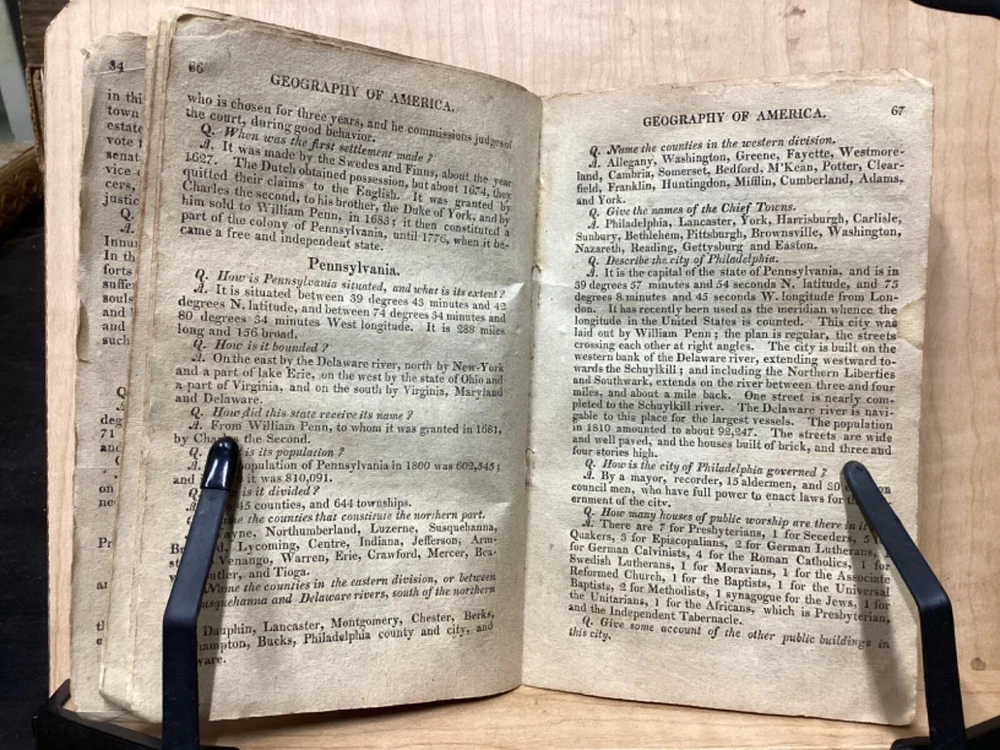 34
in thi
town
estate
vote
senat
vice
cers,
justic
Q.
A.
Innu
In th
forts
suffe
souls
and
and
such
Q
A
deg
71
and
on
ne
Pr
66
GEOGRAPHY OF AMERICA.
who is chosen for three years, and he commissions judges of
the court, during good behavior.
Q. When was the first settlement made?
A. It was made by the Swedes and Finns, about the year
1627. The Dutch obtained possession, but about 1674, they
quitted their claims to the English. It was granted by
Charles the second, to his brother, the Duke of York, and by
him sold to William Penn, in 1683; it then constituted a
part of the colony of Pennsylvania, until 1776, when it be-
came a free and independent state.
Pennsylvania.
Q. How is Pennsylvania situated, and what is its extent?
A. It is situated between 39 degrees 43 minutes and 42
degrees N. latitude, and between 74 degrees 34 minutes and
80 degrees 34 minutes West longitude. It is 288 miles
long and 156 broad.
Q. How is it bounded?
A. On the east by the Delaware river, north by New-York
and a part of lake Erie, on the west by the state of Ohio and
a part of Virginia, and on the south by Virginia, Maryland
and Delaware.
Q. How did this state receive its name?
A. From William Penn, to whom it was granted in 1681,
by Cha the Second.
Q. is its population?
A. opulation of Pennsylvania in 1800 was 602,545;
and it was 810,091.
Q is it divided?
45 counties, and 644 townships.
me the counties that constitute the northern part.
ayne, Northumberland, Luzerne, Susquehanna,
d, Lycoming, Centre, Indiana, Jefferson, Arm-
st Venango, Warren, Erie, Crawford, Mercer, Bea-
utler, and Tioga.
Name the counties in the eastern division, or between
usquehanna and Delaware rivers, south of the northern
Dauphin, Lancaster, Montgomery, Chester, Berks,
hampton, Bucks, Philadelphia county and city, and
ware.
GEOGRAPHY OF AMERICA.
67
Q. Name the counties in the western division.
A. Allegany, Washington, Greene, Fayette, Westmore-
land, Cambria, Somerset, Bedford, M'Kean, Potter, Clear-
field, Franklin, Huntingdon, Mifflin, Cumberland, Adams,
and York.
Q. Give the names of the Chief Towns.
A. Philadelphia, Lancaster, York, Harrisburgh, Carlisle,
Sunbury, Bethlehem, Pittsburgh, Brownsville, Washington,
Nazareth, Reading, Gettysburg and Easton.
Q. Describe the city of Philadelphia.
A. It is the capital of the state of Pennsylvania, and is in
39 degrees 57 minutes and 54 seconds N. latitude, and 75
degrees 8 minutes and 45 seconds W. longitude from Lon-
don. It has recently been used as the meridian whence the
longitude in the United States is counted. This city was
laid out by William Penn; the plan is regular, the streets
crossing each other at right angles. The city is built on the
western bank of the Delaware river, extending westward to-
wards the Schuylkill; and including the Northern Liberties
and Southwark, extends on the river between three and four
miles, and about a mile back. One street is nearly com-
pleted to the Schuylkill river. The Delaware river is navi-
gable to this place for the largest vessels. The population
in 1810 amounted to about 92,247. The streets are wide
and well paved, and the houses built of brick, and three and
four stories high.
Q. How is the city of Philadelphia governed?
A. By a mayor, recorder, 15 aldermen, and 30 on
council men, who have full power to enact laws for th
ernment of the city.
Q. How many houses of public worship are there in it
A. There are 7 for Presbyterians, 1 for Seceders, 5
Quakers, 3 for Episcopalians, 2 for German Lutherans,
for German Calvinists, 4 for the Roman Catholics, 1 for
Swedish Lutherans, 1 for Moravians, 1 for the Associate
Reformed Church, 1 for the Baptists, 1 for the Universal
Baptists, 2 for Methodists, 1 synagogue for the Jews, 1 for
the Unitarians, 1 for the Africans, which is Presbyterian,
and the Independent Tabernacle.
Q. Give some account of the other public buildings in
this city.